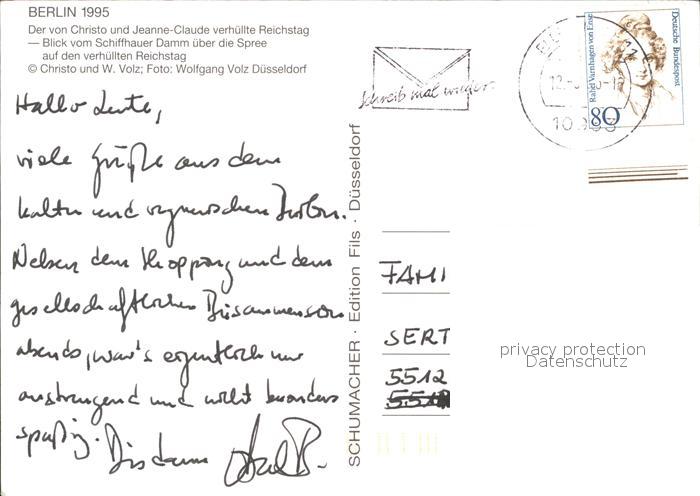 BERLIN 1995
Der von Christo und Jeanne-Claude verhüllte Reichstag
— Blick vom Schiffhauer Damm über die Spree
auf den verhüllten Reichstag
© Christo und W. Volz; Foto: Wolfgang Volz Düsseldorf
Hallo Leute,
viele Grüße aus dem
kalten und regnerischen Berlin.
Neben dem Shopping und dem
gesellschaftlichen Beisammensein
abends, war's eigentlich nur
anstrengend und nicht besonders
spaßig. Bis dann
SCHUMACHER · Edition Fils · Düsseldorf
Schreib mal wieder
Rahel Varnhagen von Ense
Deutsche Bundespost
80
FAMI
SERT
5512
privacy protection
Datenschutz